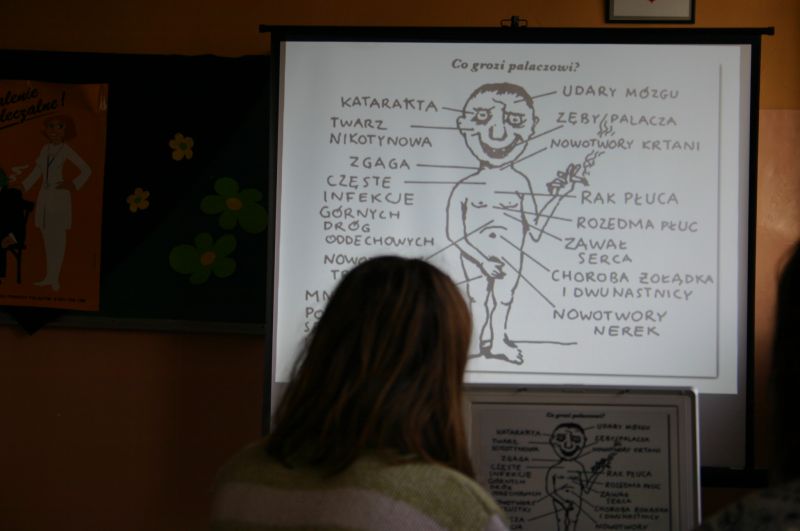 Co grozi palaczowi?
KATARAKTA
TWARZ
NIKOTYNOWA
ZGAGA
CZĘSTE
INFEKCJE
GÓRNYCH
DRÓG
ODDECHOWYCH
UDARY MÓZGU
ZĘBY PALACZA
NOWOTWORY KRTANI
RAK PŁUCA
ROZEDMA PŁUC
ZAWAŁ
SERCA
CHOROBA ŻOŁĄDKA
I DWUNASTNICY
NOWOTWORY
NEREK
Co grozi palaczowi?
KATARAKTA
TWARZ
NIKOTYNOWA
ZGAGA
CZĘSTE
INFEKCJE
GÓRNYCH
DRÓG
ODDECHOWYCH
NOWOTWORY
TRZUSTKI
UDARY MÓZGU
ZĘBY PALACZA
NOWOTWORY KRTANI
RAK PŁUCA
ROZEDMA PŁUC
ZAWAŁ
SERCA
CHOROBA ŻOŁĄDKA
I DWUNASTNICY
NOWOTWORY